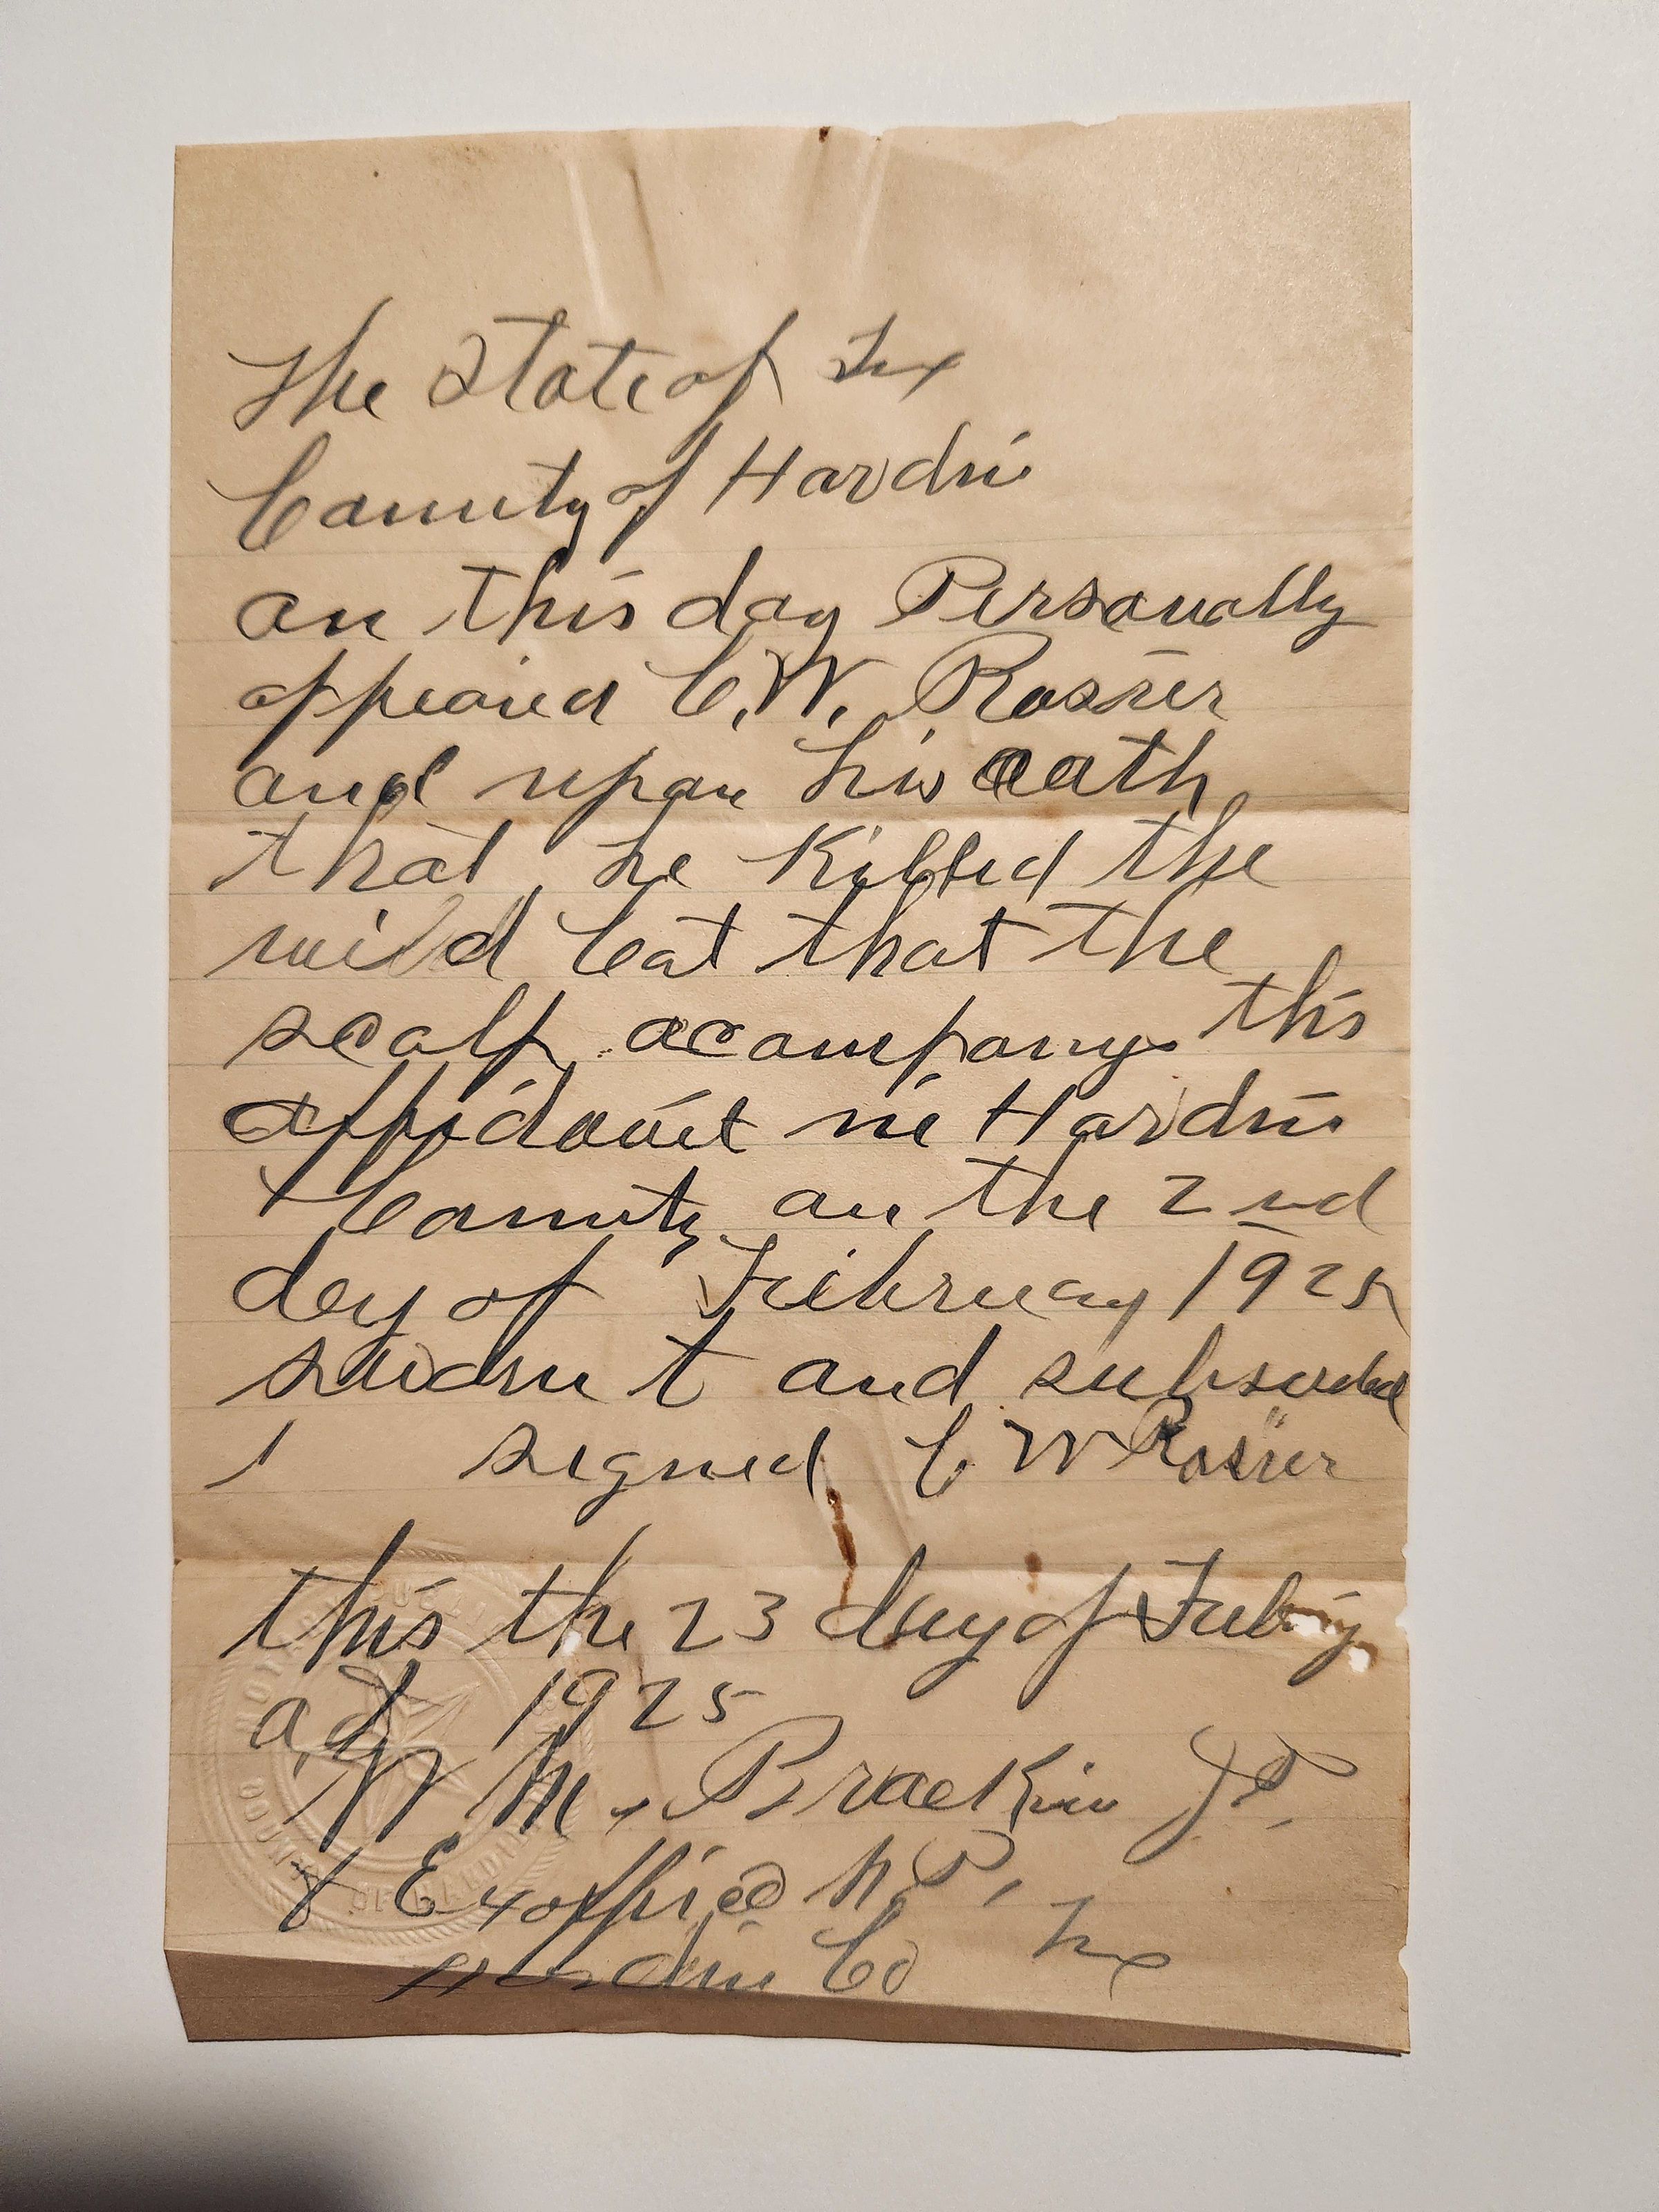 The State of Tex
County of Hardin
on this day Personally
appeared C.W. Rosier
and upon his oath
that he Killed the
wild Cat that the
scalp acompany this
affidavit in Hardin
County on the 2nd
dey of Feibruary 1925
sworn t and subscribed
signed C. W Rosier
this the 23 day of Feb
a,d, 1925
W M. Brackin J.P.
& Exofficio N.P.
Hardin Co Tex